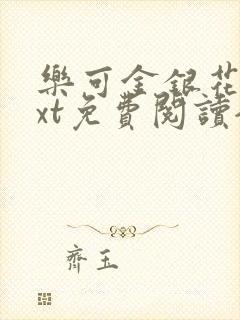 樂可金銀花
xt免費閱讀
齊玉